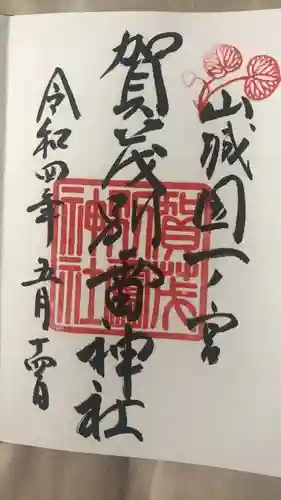 山城国一ノ宮
賀茂別雷神社
令和四年五月十四日
賀茂別雷神社